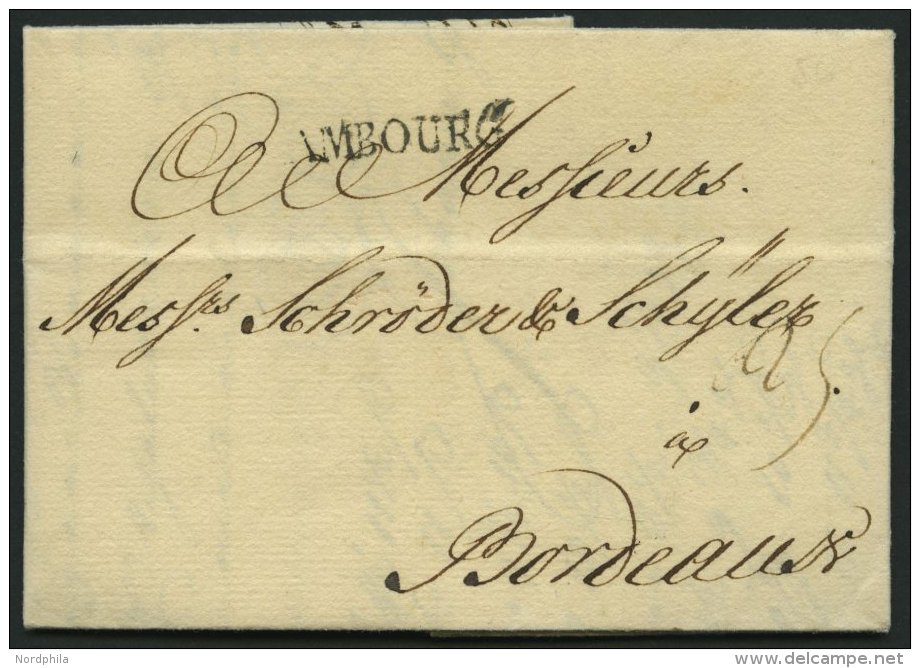 AMBOURG
Messieurs.
Messrs. Schröder & Schÿler
à
Bordeaux
Nordphila
delcampe.net